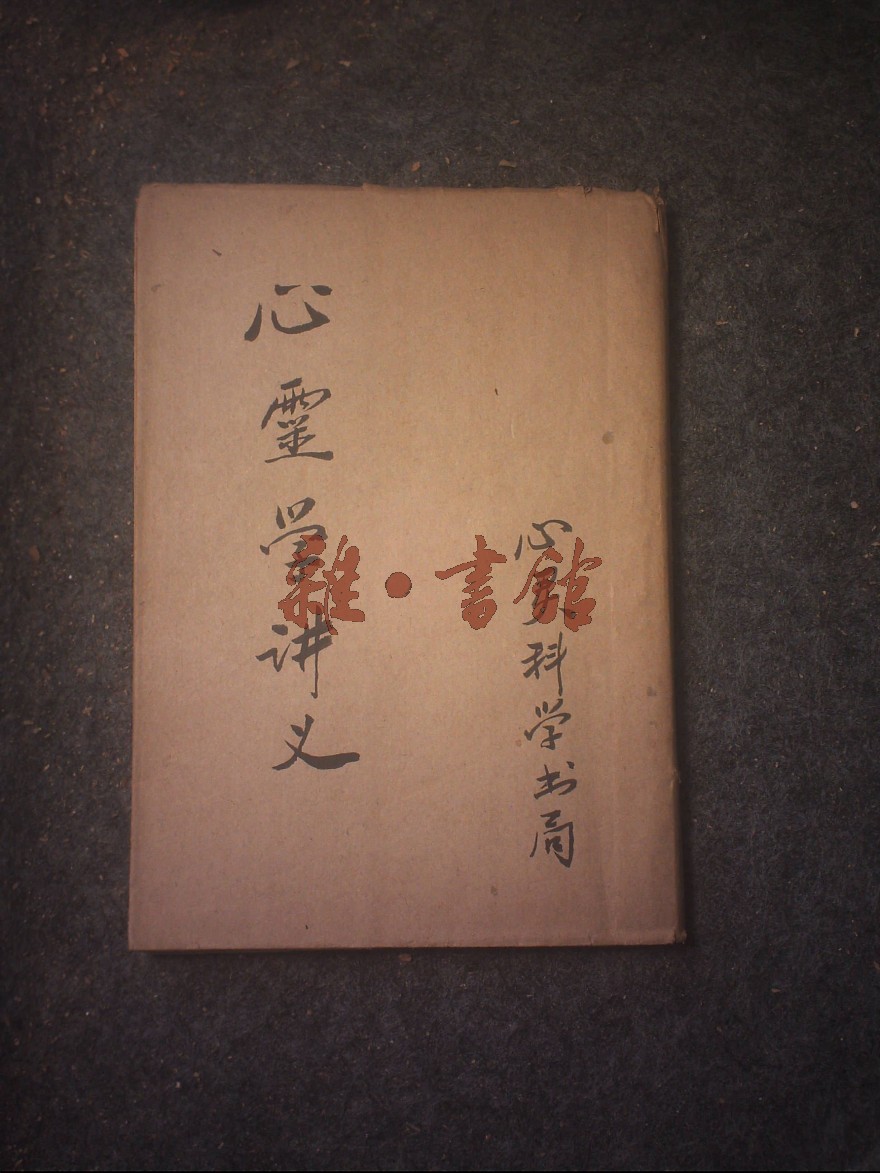 心靈学讲义
心灵科学书局
雜·書館